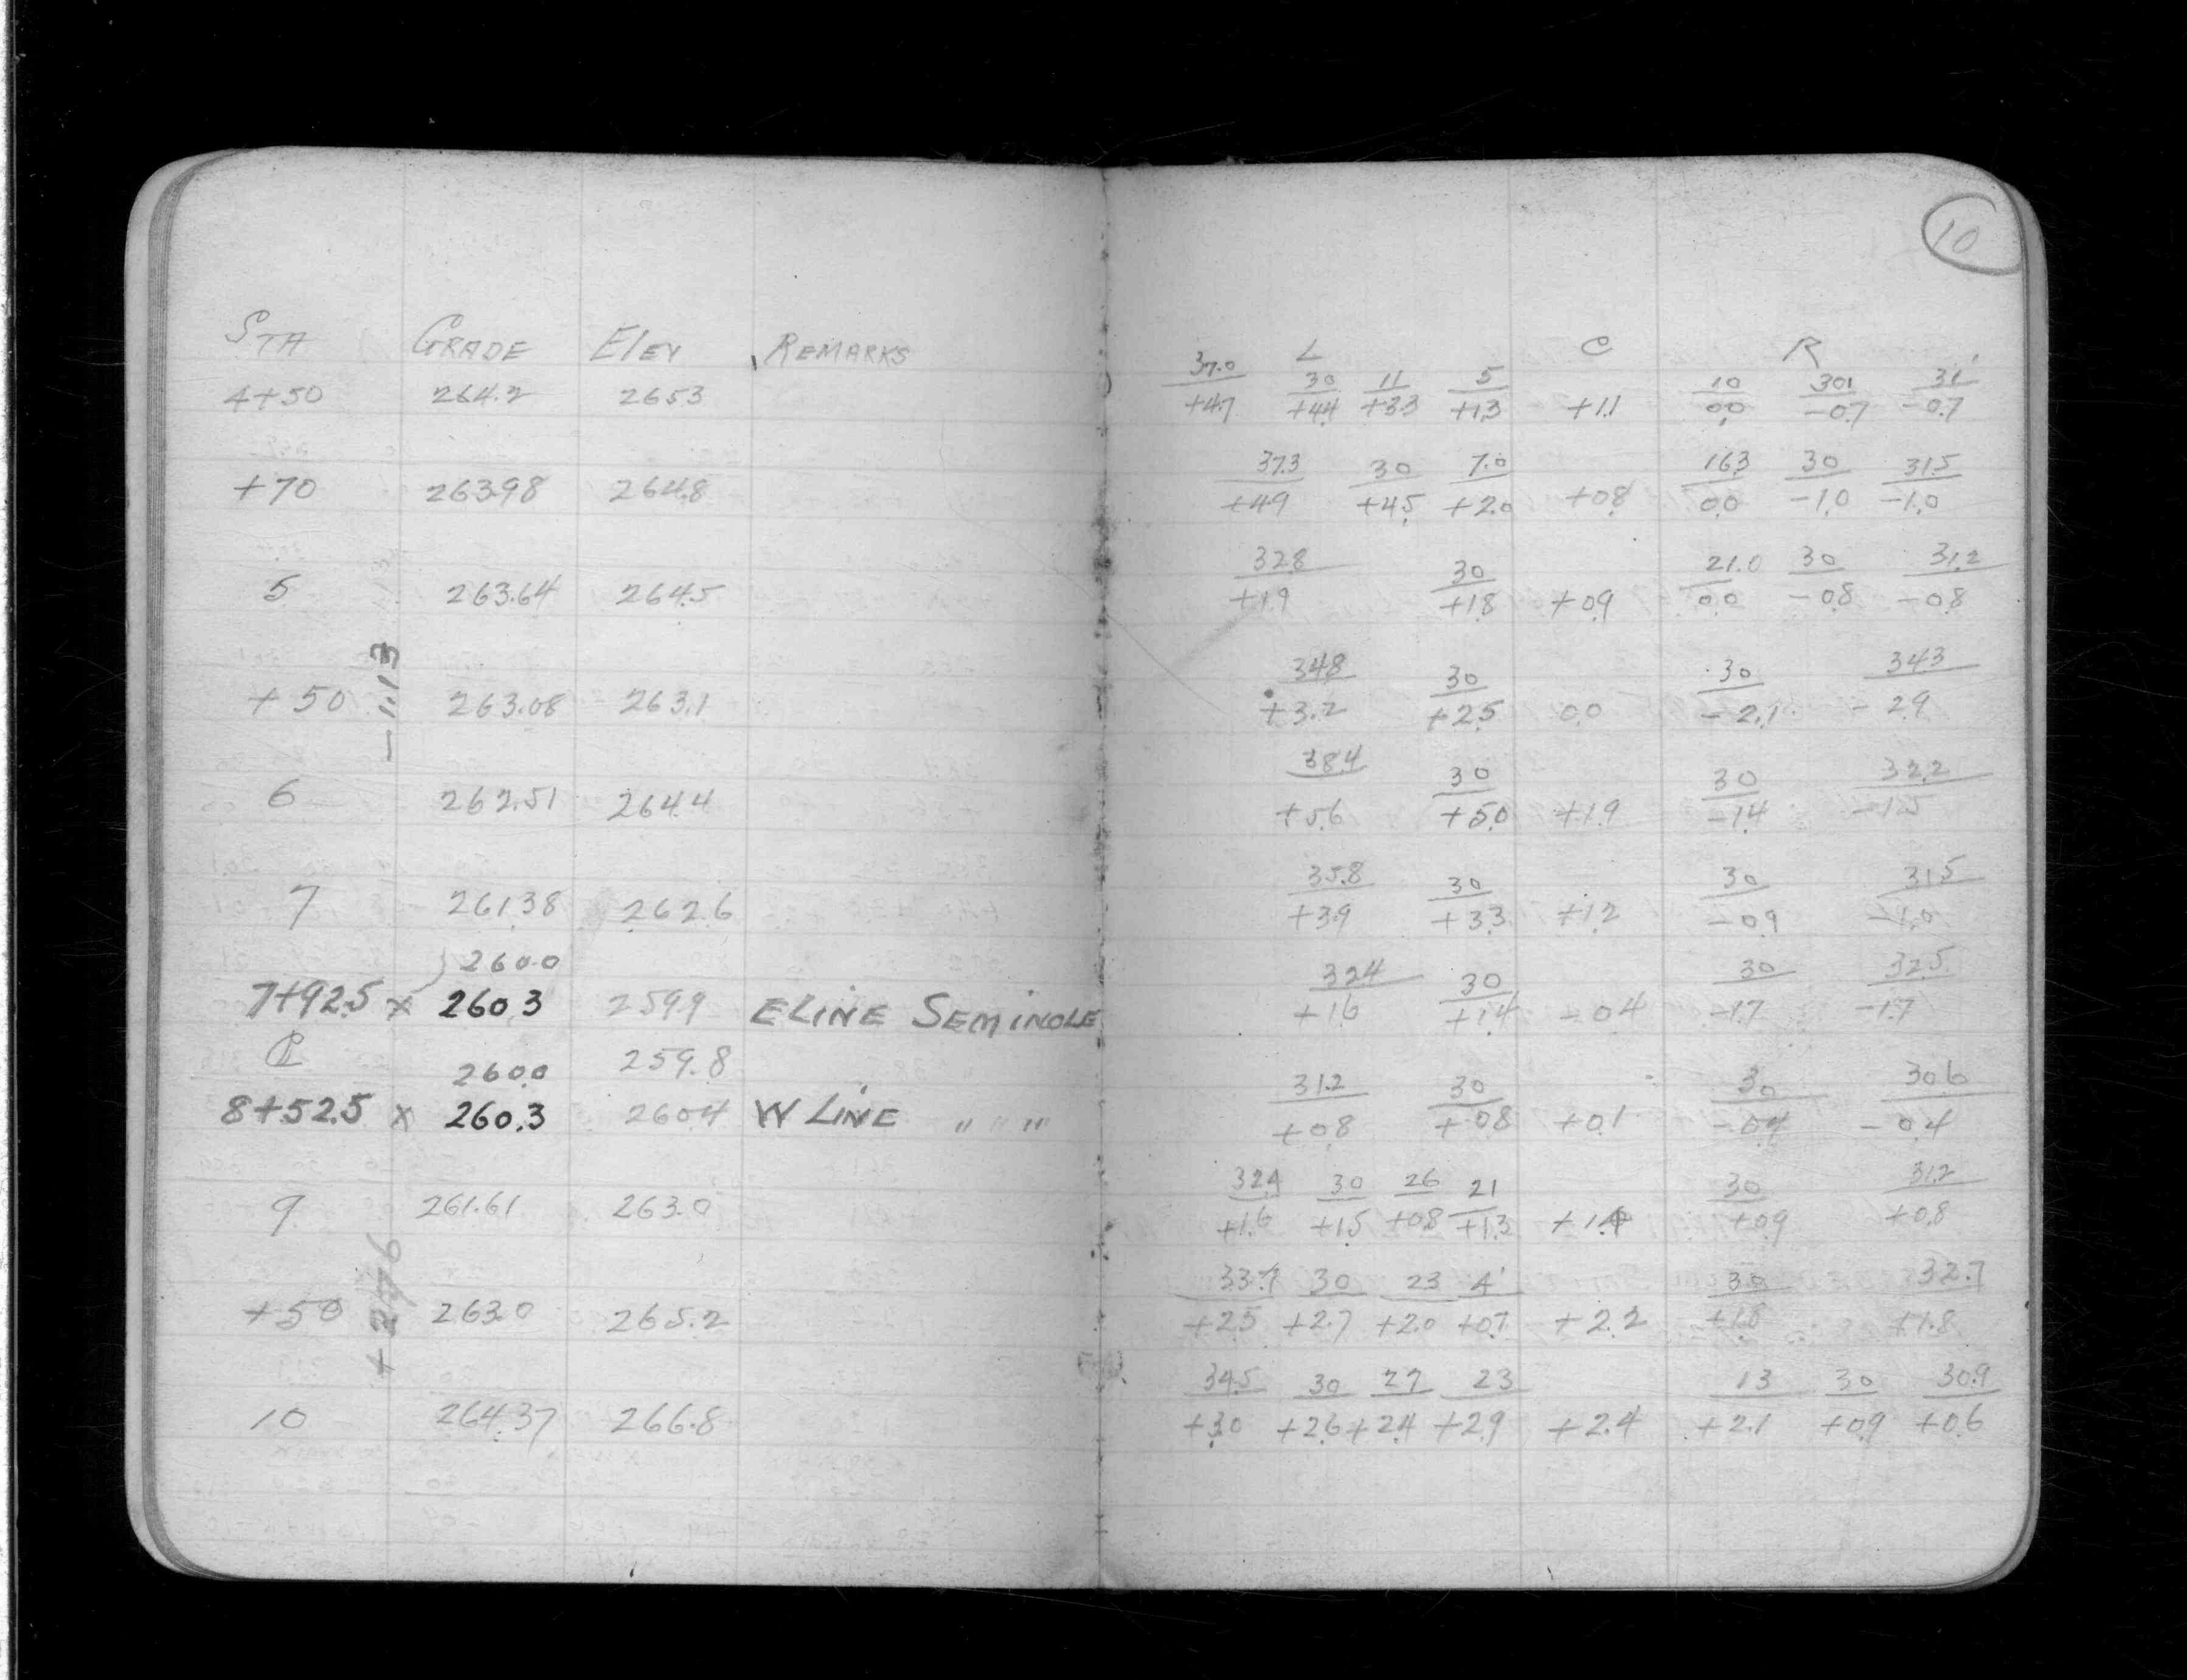 10
STA GRADE ELEV REMARKS L C R
37.0 30 11 5 10 30.1 31'
4+50 264.2 265.3 +4.7 +4.4 +3.3 +1.3 +1.1 0.0 -0.7 -0.7
37.3 30 7.0 16.3 30 31.5
+70 263.98 264.8 +4.9 +4.5 +2.0 +0.8 0.0 -1.0 -1.0
32.8 30 21.0 30 31.2
5 263.64 264.5 +1.9 +1.8 +0.9 0.0 -0.8 -0.8
-1.13
34.8 30 30 34.3
+50 263.08 263.1 +3.2 +2.5 0.0 -2.1 -2.9
38.4 30 30 32.2
6 262.51 264.4 +5.6 +5.0 +1.9 -1.4 -1.5
35.8 30 30 31.5
7 261.38 262.6 +3.9 +3.3 +1.2 -0.9 -1.0
260.0
32.4 30 30 32.5
7+92.5 x 260.3 259.9 E LINE SEMINOLE +1.6 +1.4 -0.4 -1.7 -1.7
℄ 259.8
260.0
31.2 30 30 30.6
8+52.5 x 260.3 260.4 W LINE " " " +0.8 +0.8 +0.1 -0.4 -0.4
32.4 30 26 21 30 31.2
9 261.61 263.0 +1.6 +1.5 +0.8 +1.3 +1.4 +0.9 +0.8
+2.76
33.7 30 23 4' 30 32.7
+50 263.0 265.2 +2.5 +2.7 +2.0 +0.7 +2.2 +1.8 +1.8
34.5 30 27 23 13 30 30.9
10 264.37 266.8 +3.0 +2.6 +2.4 +2.9 +2.4 +2.1 +0.9 +0.6